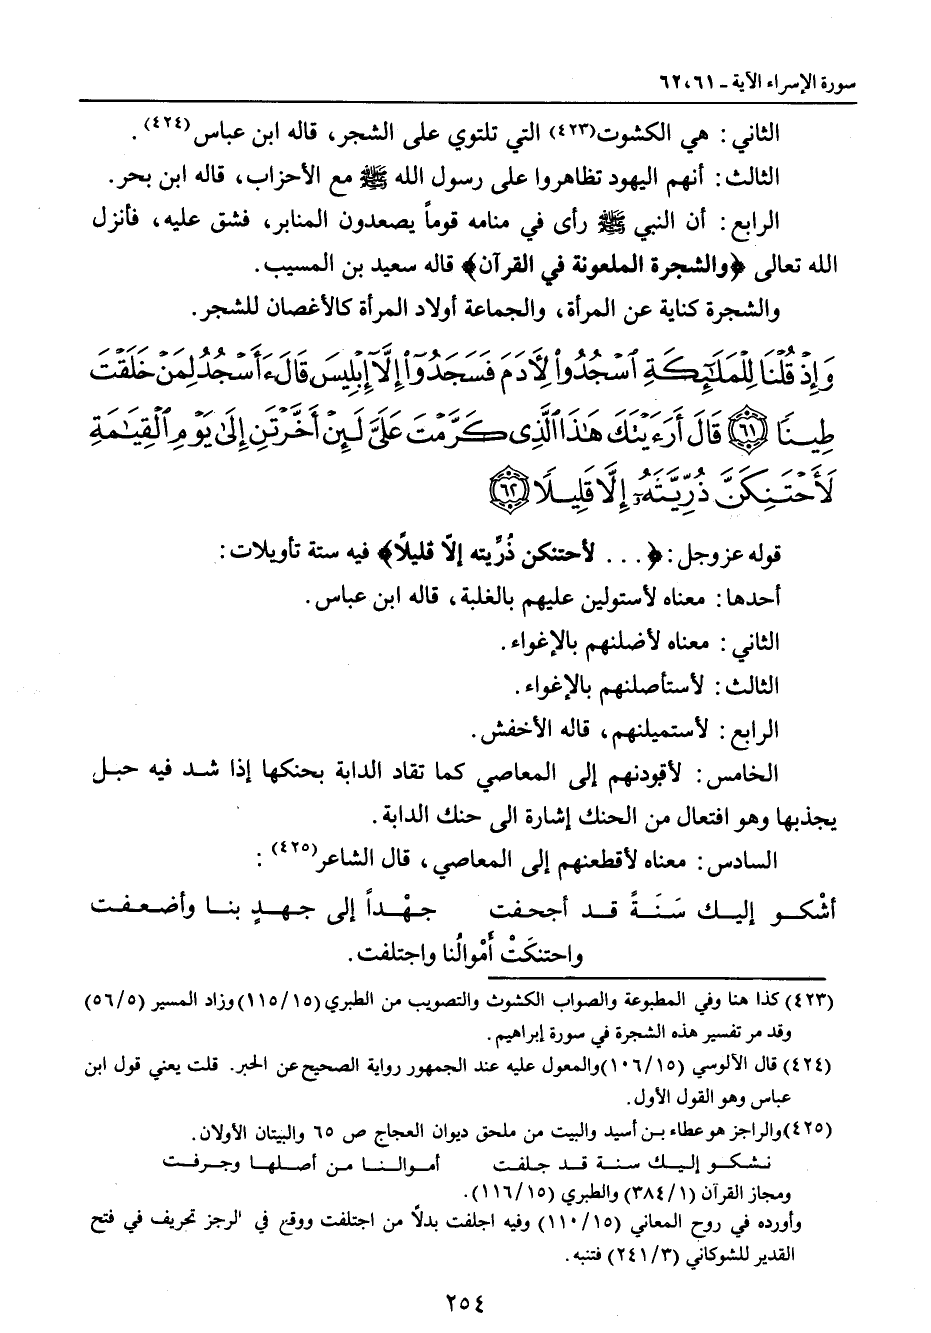 سورة الإسراء الآية - ٦١، ٦٢
الثاني: هي الكشوت(٤٢٣) التي تلتوي على الشجر، قاله ابن عباس(٤٢٤).
الثالث: أنهم اليهود تظاهروا على رسول الله ﷺ مع الأحزاب، قاله ابن بحر.
الرابع: أن النبي ﷺ رأى في منامه قوماً يصعدون المنابر، فشق عليه، فأنزل
الله تعالى ﴿والشجرة الملعونة في القرآن﴾ قاله سعيد بن المسيب.
والشجرة كناية عن المرأة، والجماعة أولاد المرأة كالأغصان للشجر.
وَإِذْ قُلْنَا لِلْمَلَٰٓئِكَةِ ٱسْجُدُوا۟ لِءَادَمَ فَسَجَدُوٓا۟ إِلَّآ إِبْلِيسَ قَالَ ءَأَسْجُدُ لِمَنْ خَلَقْتَ
طِينًا ٦١ قَالَ أَرَءَيْتَكَ هَٰذَا ٱلَّذِى كَرَّمْتَ عَلَىَّ لَئِنْ أَخَّرْتَنِ إِلَىٰ يَوْمِ ٱلْقِيَٰمَةِ
لَأَحْتَنِكَنَّ ذُرِّيَّتَهُۥٓ إِلَّا قَلِيلًا ٦٢
قوله عز وجل: ﴿... لأحتنكن ذُرِّيته إلّا قليلًا﴾ فيه ستة تأويلات:
أحدها: معناه لأستولين عليهم بالغلبة، قاله ابن عباس.
الثاني: معناه لأضلنهم بالإغواء.
الثالث: لأستأصلنهم بالإغواء.
الرابع: لأستميلنهم، قاله الأخفش.
الخامس: لأقودنهم إلى المعاصي كما تقاد الدابة بحنكها إذا شد فيه حبل
يجذبها وهو افتعال من الحنك إشارة الى حنك الدابة.
السادس: معناه لأقطعنهم إلى المعاصي، قال الشاعر(٤٢٥):
أشْكو إليك سَنَةً قد أجحفت جهْداً إلى جهدٍ بنا وأضعفت
واحتنكَتْ أَمْوالُنا واجتلفت.
(٤٢٣) كذا هنا وفي المطبوعة والصواب الكشوث والتصويب من الطبري (١١٥/١٥) وزاد المسير (٥٦/٥)
وقد مر تفسير هذه الشجرة في سورة إبراهيم.
(٤٢٤) قال الآلوسي (١٠٦/١٥) والمعول عليه عند الجمهور رواية الصحيح عن الحبر. قلت يعني قول ابن
عباس وهو القول الأول.
(٤٢٥) والراجز هو عطاء بن أسيد والبيت من ملحق ديوان العجاج ص ٦٥ والبيتان الأولان.
نشكو إليك سنة قد جلفت أموالنا من أصلها وجرفت
ومجاز القرآن (٣٨٤/١) والطبري (١١٦/١٥).
وأورده في روح المعاني (١١٠/١٥) وفيه اجلفت بدلاً من اجتلفت ووقع في الرجز تحريف في فتح
القدير للشوكاني (٢٤١/٣) فتنبه.
٢٥٤